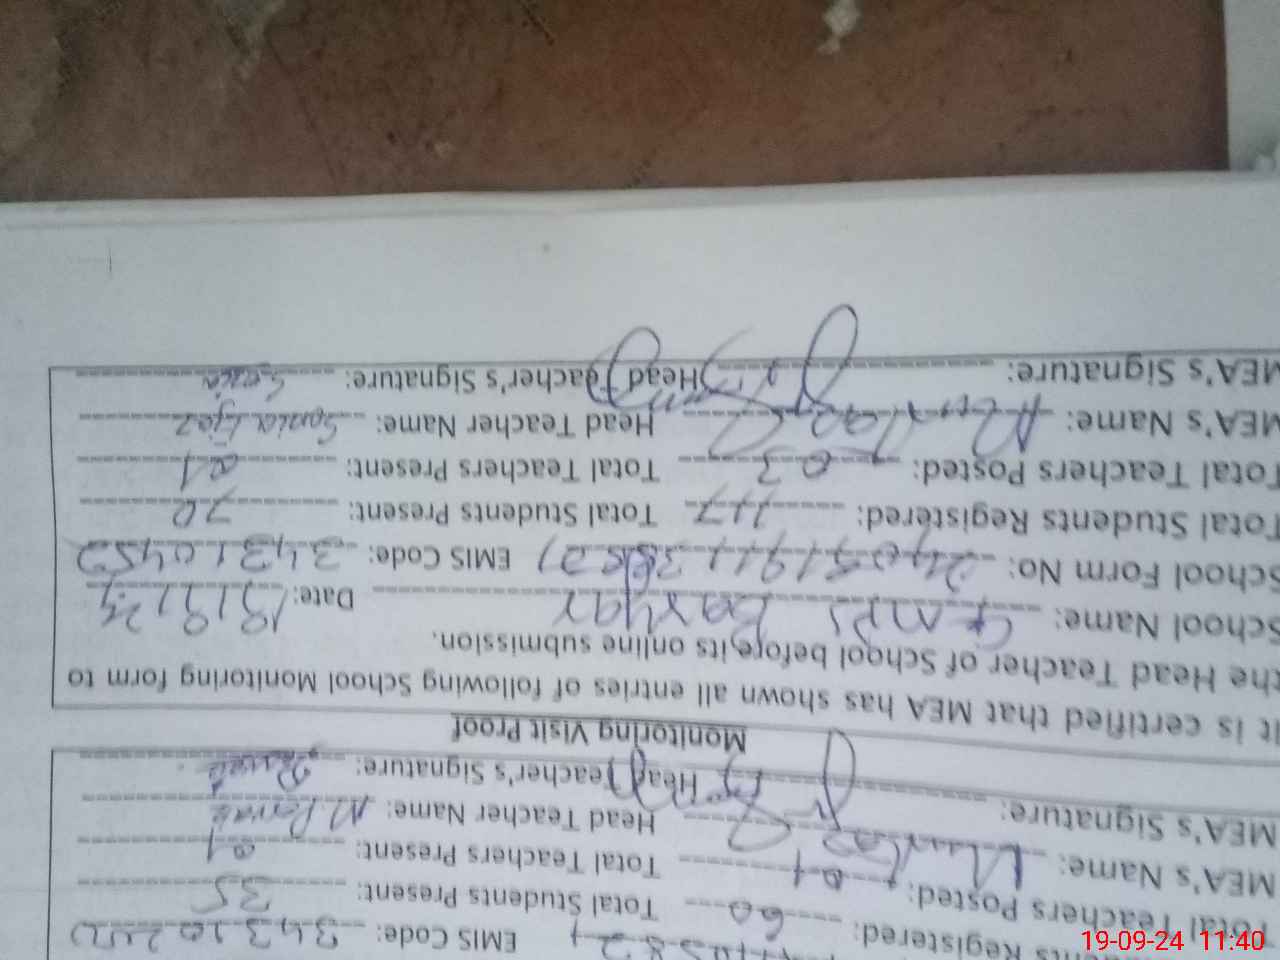 EMIS Code:
Registered: 60 Total Students Present: 35
Total Teachers Posted: 01 Total Teachers Present: 01
MEA's Name: Mumtaz Head Teacher Name:
MEA's Signature: Head Teacher's Signature:
Monitoring Visit Proof
It is certified that MEA has shown all entries of following School Monitoring form to
the Head Teacher of School before its online submission.
School Name: GMPS Date: 19/9/24
School Form No: EMIS Code: 34310452
Total Students Registered: 117 Total Students Present: 70
Total Teachers Posted: 03 Total Teachers Present: 01
MEA's Name: Mumtaz Head Teacher Name: Sonia Ejaz
MEA's Signature: Head Teacher's Signature: Sonia
19-09-24 11:40